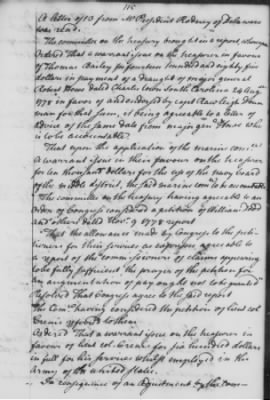 115
A letter of 10 from Mr President Rodney of Delaware
was read.
The committee on the treasury brought in a report whereupon
Ordered That a warrant issue on the treasurer in favour
of Thomas Bailey for fourteen hundred and eighty five
dollars in payment of a draught of major general
Robert Howe dated Charles town South Carolina 24 Augt
1778 in favor of and endorsed by capt Rawleigh
wan for that sum, it being agreeable to a letter of
advice of the same date from major gen Howe who
is to be accountable:
That upon the application of the marine comee
a warrant issue in their favour on the treasurer
for ten thousand dollars for the use of the navy board
of the middle district, the said marine comee to be accountable
The committee on the treasury having agreeable to an
order of Congress considered a petition of William
and others dated Novr 9 1778 report
That the allowance made by Congress to the peti-
tioners for their services as expresses agreeable to
a report of the commissioners of claims appearing
to be fully sufficient the prayer of the petition for
an augmentation of pay ought not to be granted
Resolved That Congress agree to the said report
The Comee having considered the petition of lieut col
referred to them
Ordered That a warrant issue on the treasurer in
favour of lieut col. for six hundred dollars
in full for his services whilst employed in the
Army of the United States.
In consequence of an adjustment by the com-